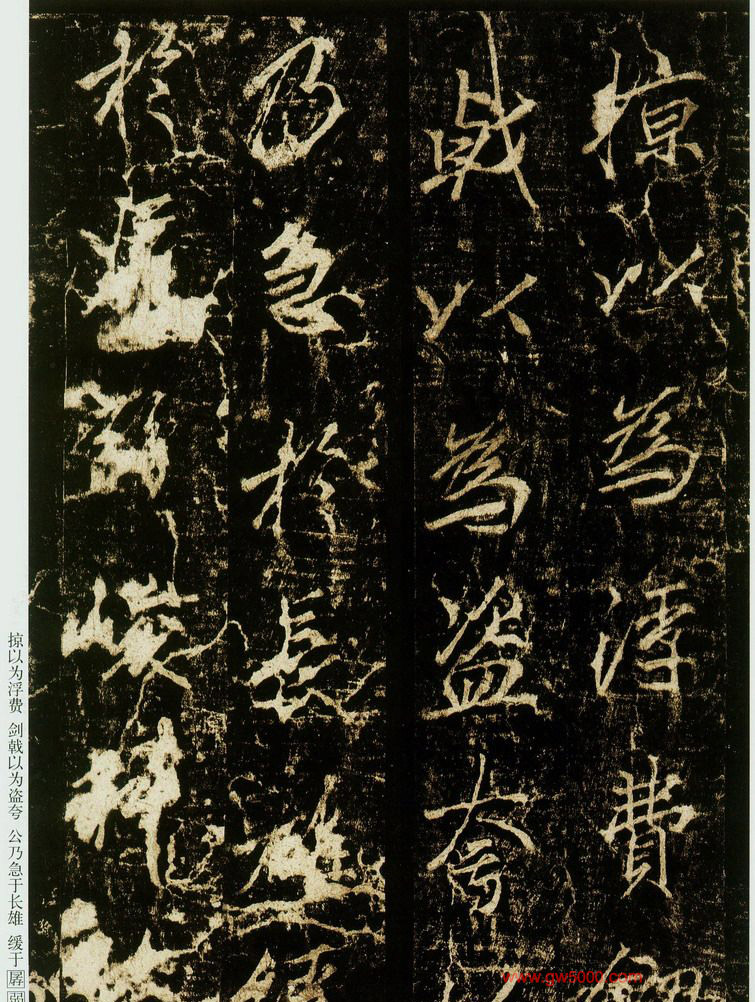 掠以為浮費
戟以為盜夸
乃急於長雄
於孱弱峻
掠以为浮费 剑戟以为盗夸 公乃急于长雄 缓于孱
www.gw5000.com